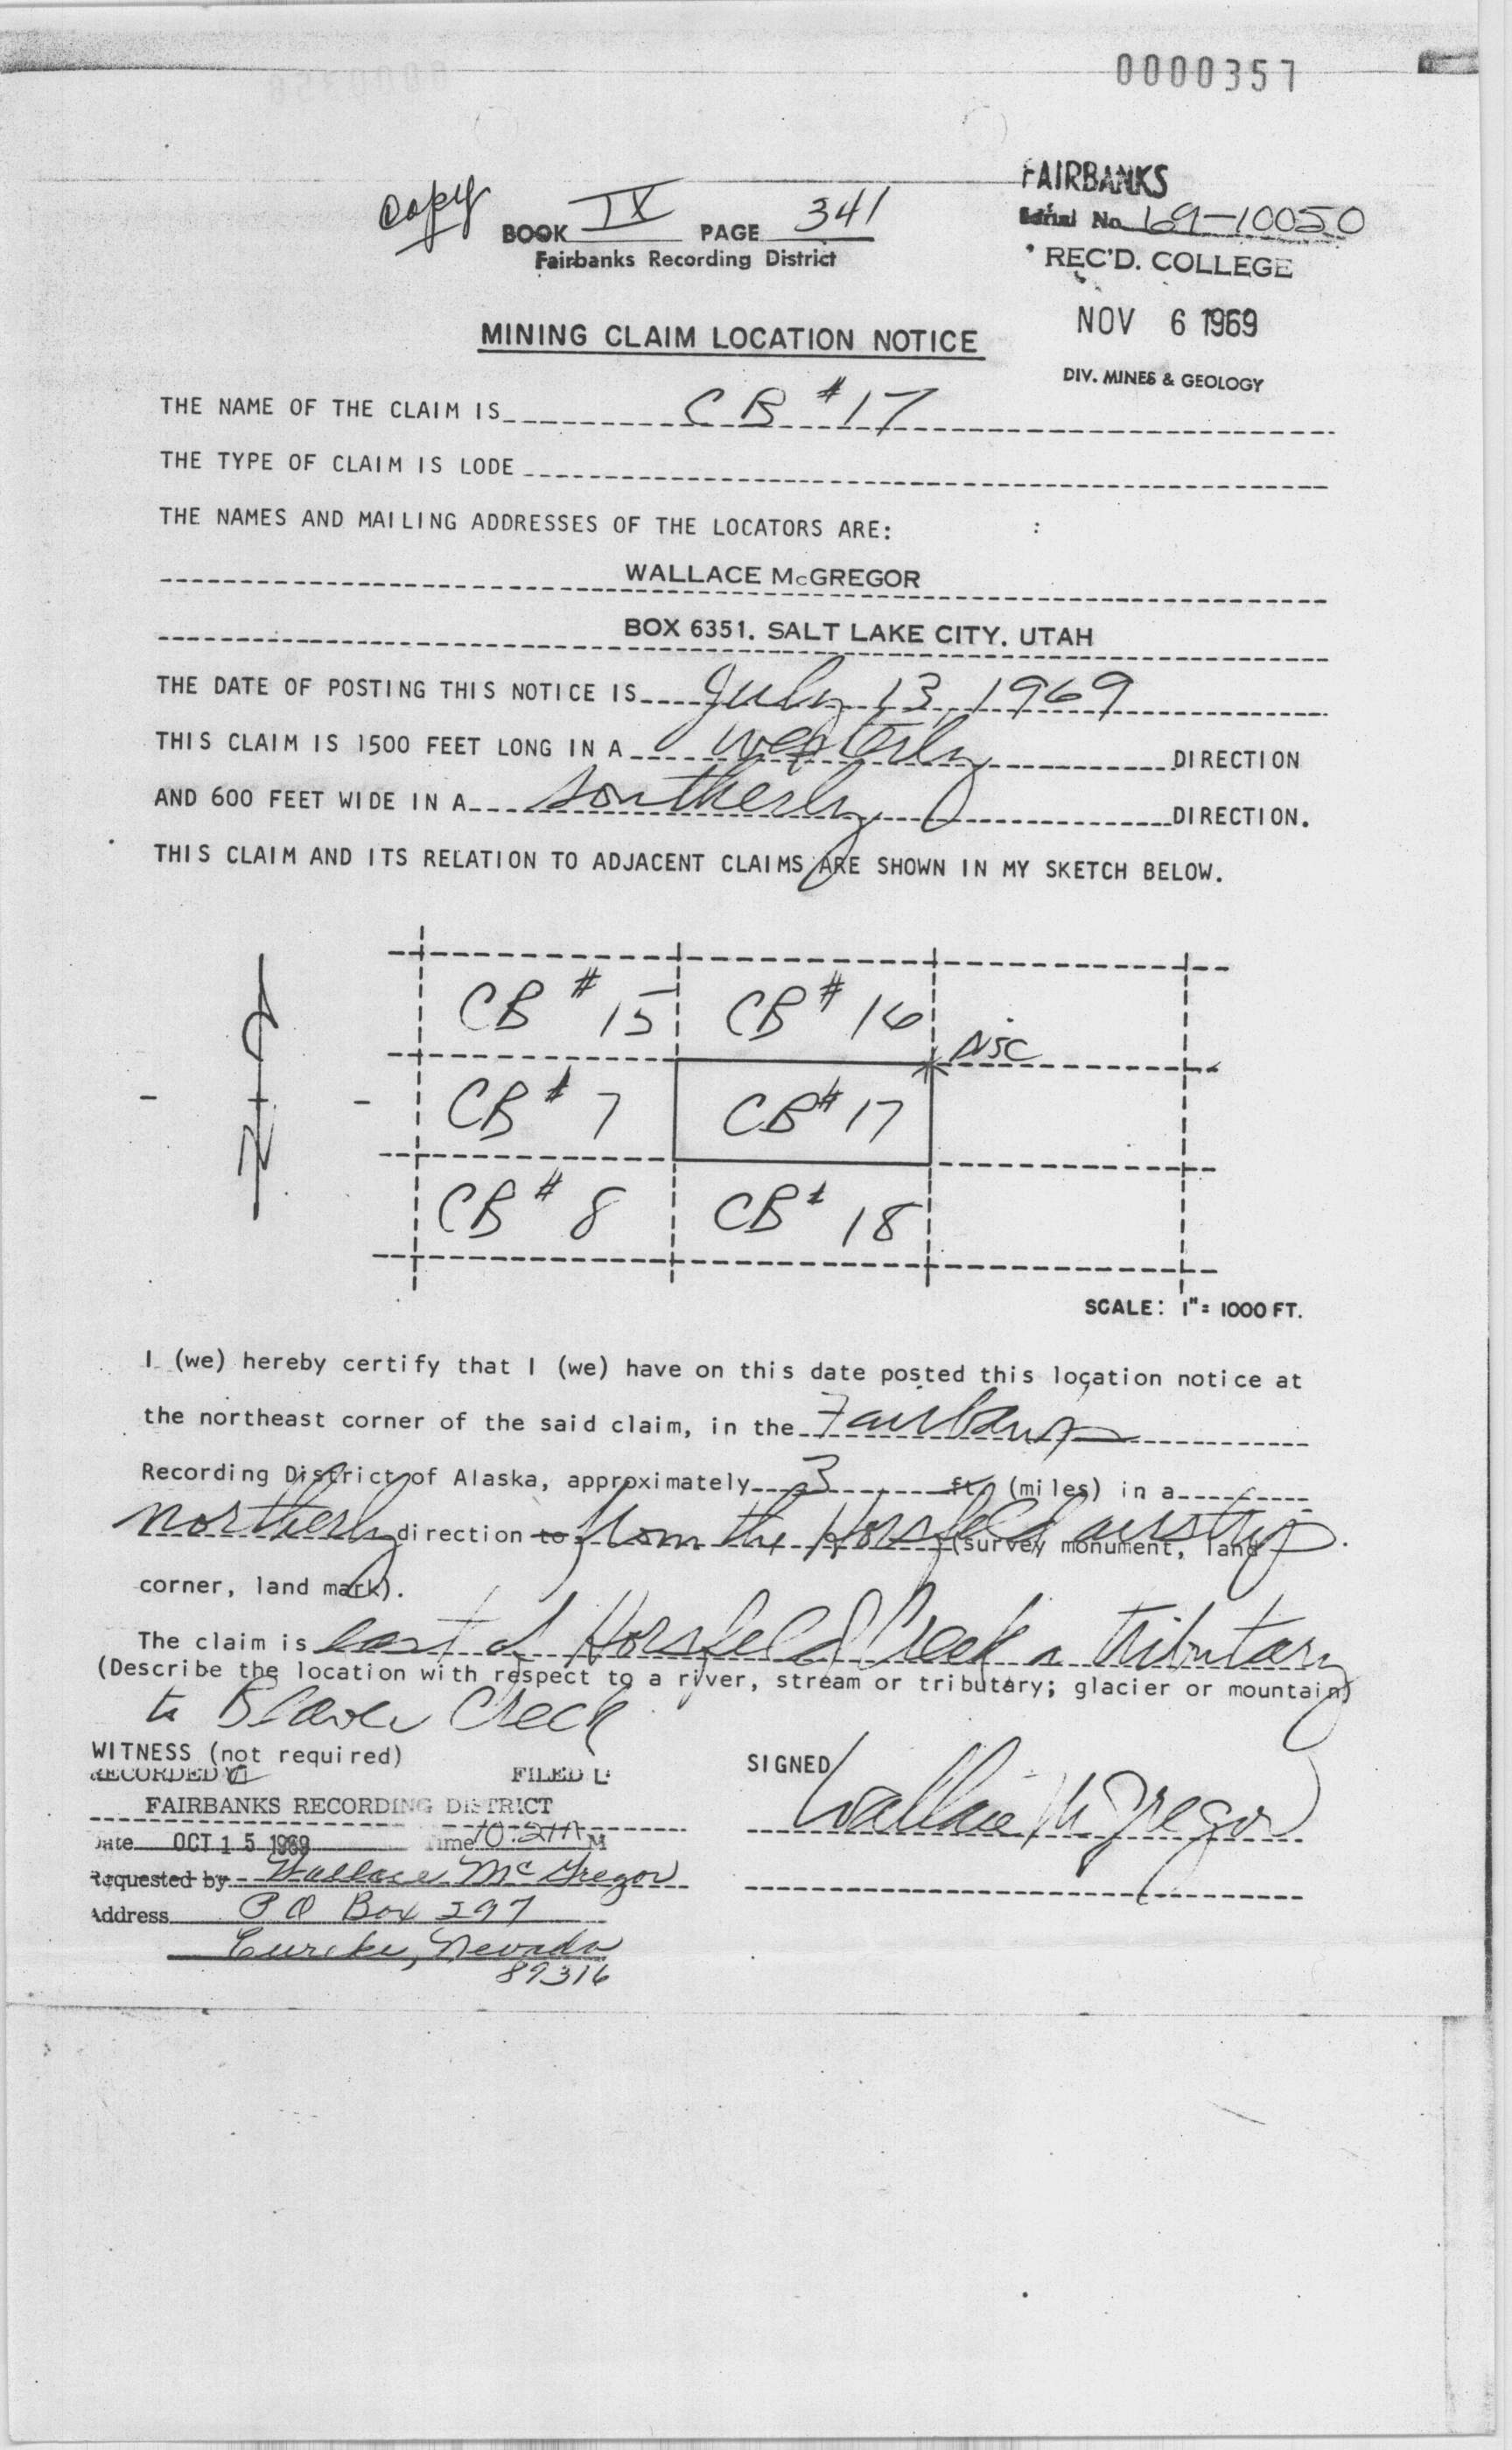 0000357
copy
BOOK IX PAGE 341
Fairbanks Recording District
FAIRBANKS
Serial No. 69-10050
REC'D. COLLEGE
NOV 6 1969
DIV. MINES & GEOLOGY
MINING CLAIM LOCATION NOTICE
THE NAME OF THE CLAIM IS CB #17
THE TYPE OF CLAIM IS LODE
THE NAMES AND MAILING ADDRESSES OF THE LOCATORS ARE:
WALLACE McGREGOR
BOX 6351, SALT LAKE CITY, UTAH
THE DATE OF POSTING THIS NOTICE IS July 13, 1969
THIS CLAIM IS 1500 FEET LONG IN A westerly DIRECTION
AND 600 FEET WIDE IN A southerly DIRECTION.
THIS CLAIM AND ITS RELATION TO ADJACENT CLAIMS ARE SHOWN IN MY SKETCH BELOW.
CB #15 CB #16
NSC
CB #7 CB #17
N
CB #8 CB #18
SCALE: 1" = 1000 FT.
I (we) hereby certify that I (we) have on this date posted this location notice at
the northeast corner of the said claim, in the Fairbanks
Recording District of Alaska, approximately 3 ft. (miles) in a
northerly direction to from the Horsfeld airstrip. (survey monument, land
corner, land mark).
The claim is east of Horsfeld Creek a tributary
(Describe the location with respect to a river, stream or tributary; glacier or mountain)
to Beaver Creek
WITNESS (not required)
SIGNED Wallace McGregor
RECORDED FILED
FAIRBANKS RECORDING DISTRICT
Date OCT 15 1969 Time M
Requested by Wallace McGregor
Address P O Box 297
Eureka, Nevada
89316